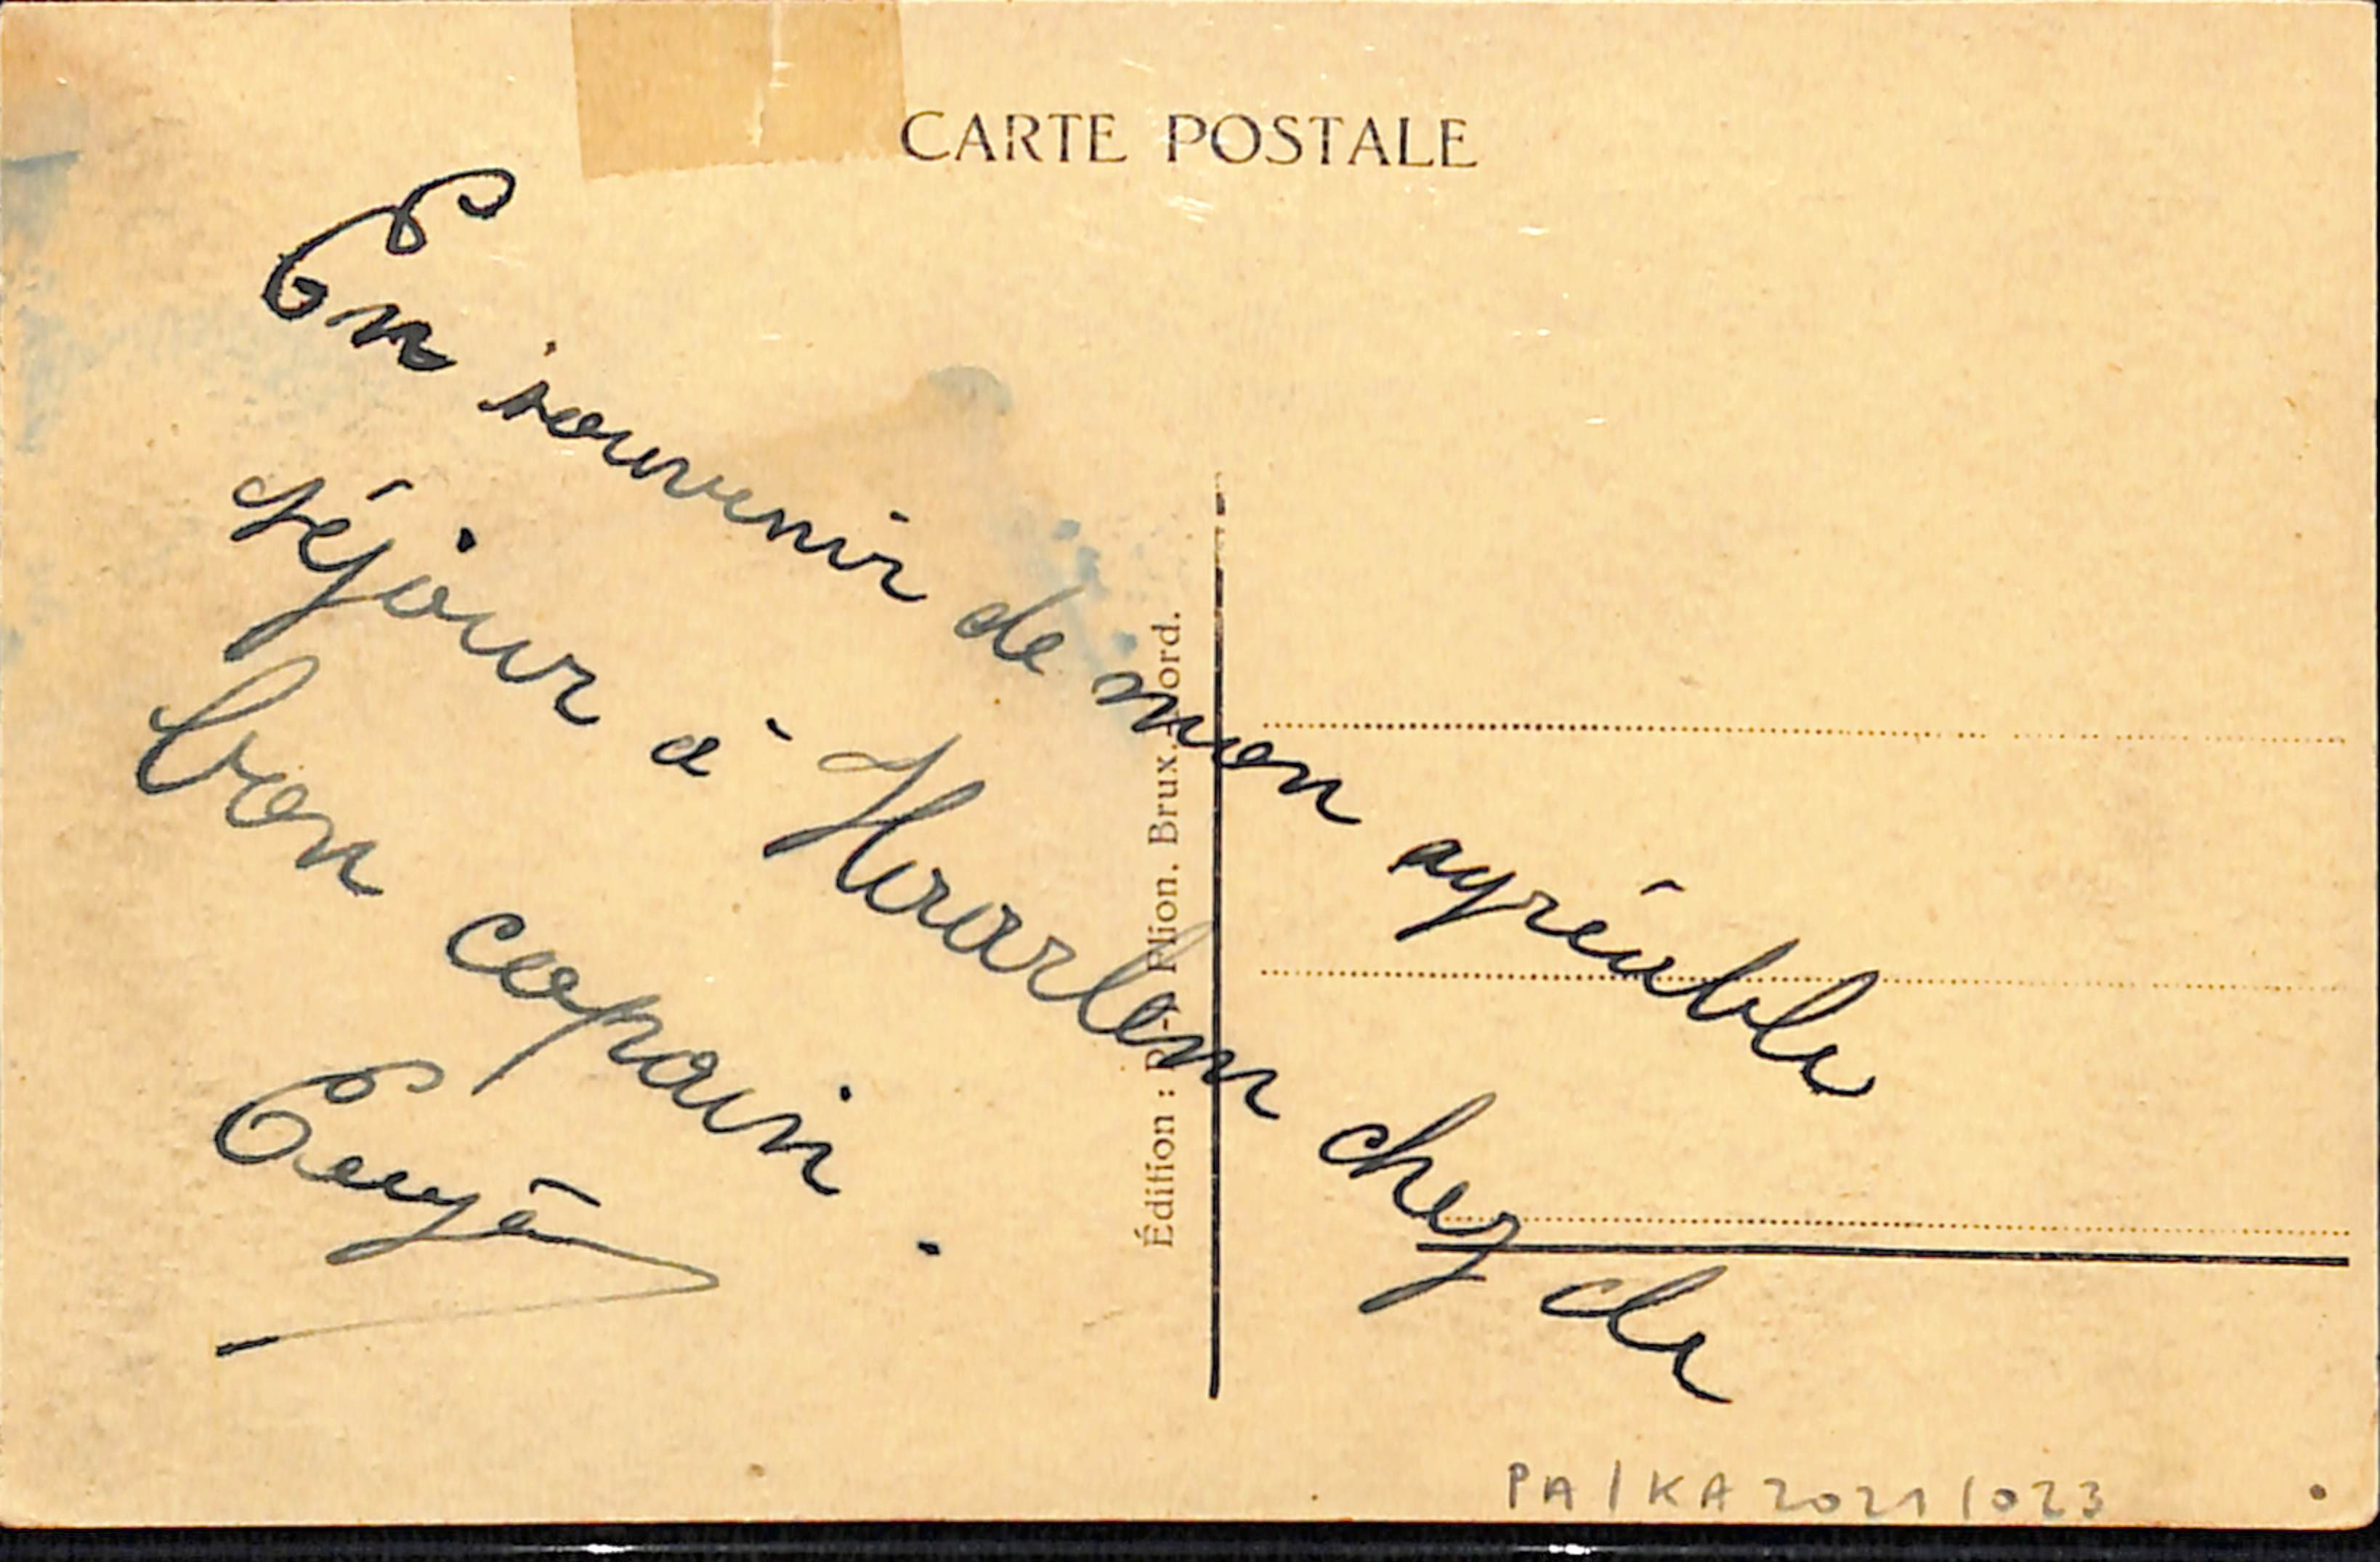 CARTE POSTALE
En souvenir de mon agréable
séjour à Haarlem chez de
bon copain.
Édition : Flion. Brux. Nord.
PA/KA2021/023